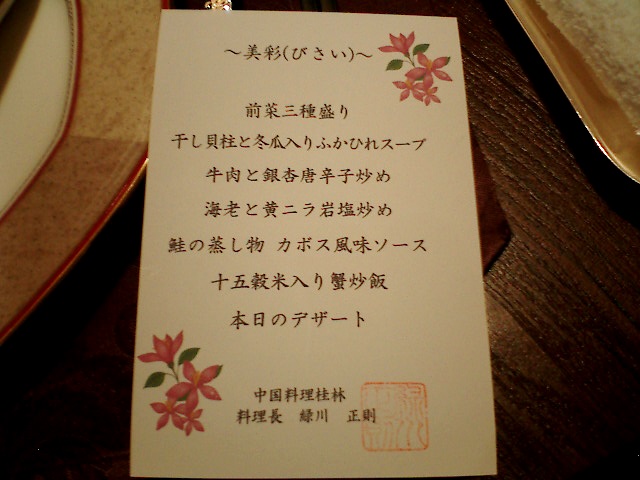 ～美彩(びさい)～
前菜三種盛り
干し貝柱と冬瓜入りふかひれスープ
牛肉と銀杏唐辛子炒め
海老と黄ニラ岩塩炒め
鮭の蒸し物 カボス風味ソース
十五穀米入り蟹炒飯
本日のデザート
中国料理桂林
料理長 緑川 正則